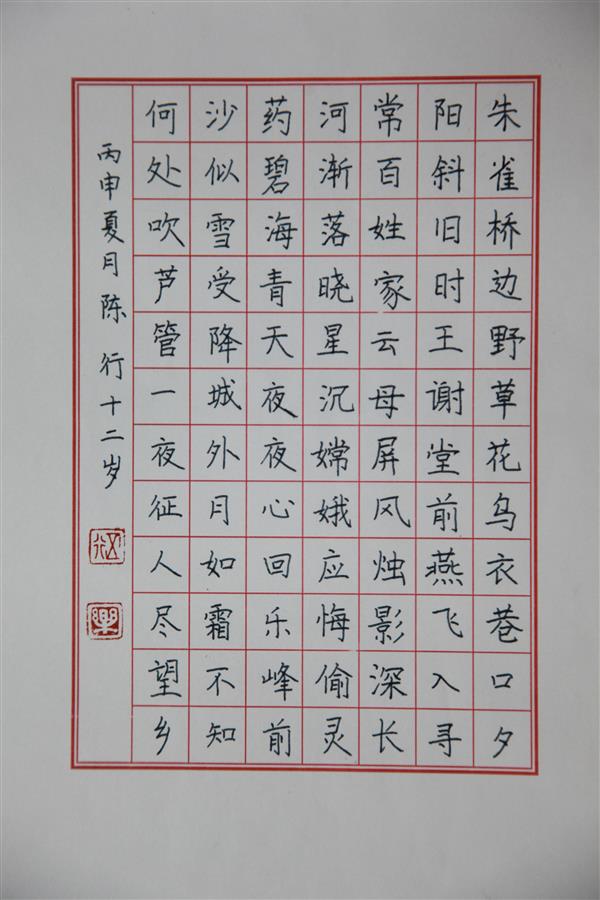 朱雀桥边野草花乌衣巷口夕
阳斜旧时王谢堂前燕飞入寻
常百姓家云母屏风烛影深长
河渐落晓星沉嫦娥应悔偷灵
药碧海青天夜夜心回乐峰前
沙似雪受降城外月如霜不知
何处吹芦管一夜征人尽望乡
丙申夏月陈行十二岁